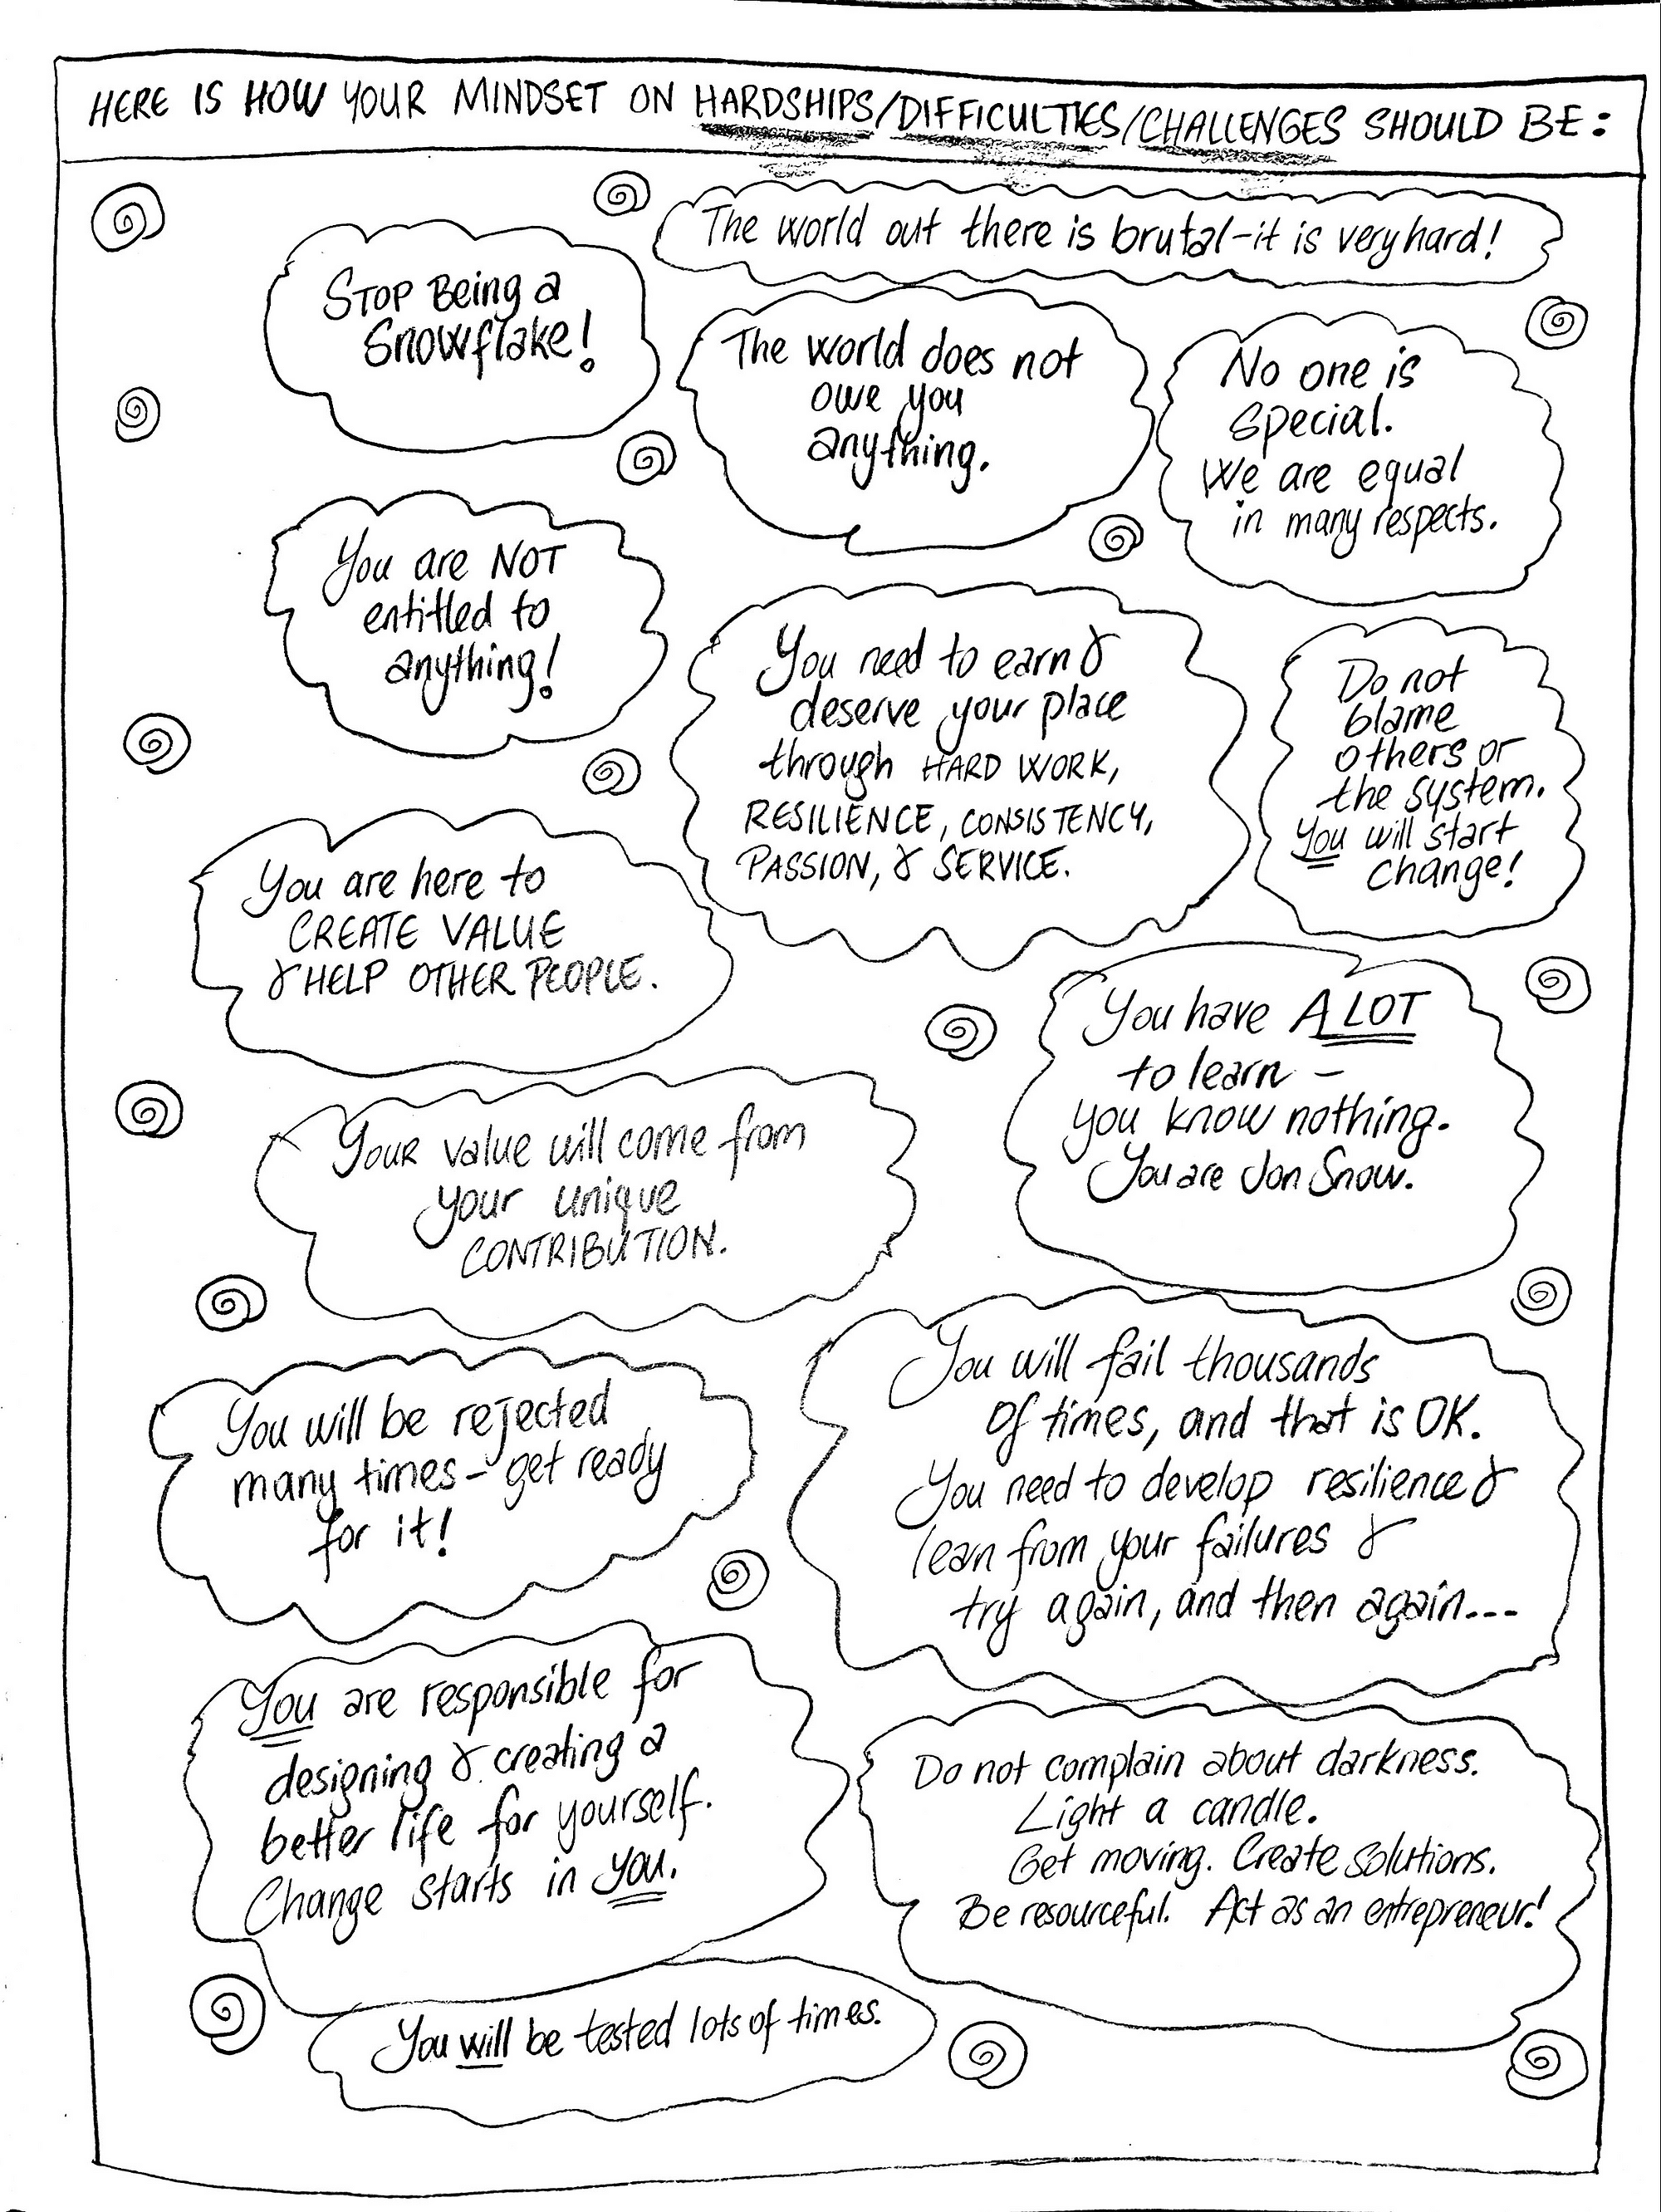 HERE IS HOW YOUR MINDSET ON HARDSHIPS/DIFFICULTIES/CHALLENGES SHOULD BE:
The world out there is brutal-it is very hard!
STOP Being a
Snowflake!
The world does not
owe you
anything.
No one is
special.
We are equal
in many respects.
You are NOT
entitled to
anything!
You need to earn &
deserve your place
through HARD WORK,
RESILIENCE, CONSISTENCY,
PASSION, & SERVICE.
Do not
blame
others or
the system.
You will start
change!
You are here to
CREATE VALUE
& HELP OTHER PEOPLE.
You have A LOT
to learn -
you know nothing.
You are Jon Snow.
Your value will come from
your unique
CONTRIBUTION.
You will be rejected
many times - get ready
for it!
You will fail thousands
of times, and that is OK.
You need to develop resilience &
lean from your failures &
try again, and then again...
You are responsible for
designing & creating a
better life for yourself.
Change starts in you.
Do not complain about darkness.
Light a candle.
Get moving. Create solutions.
Be resourceful. Act as an entrepreneur!
You will be tested lots of times.